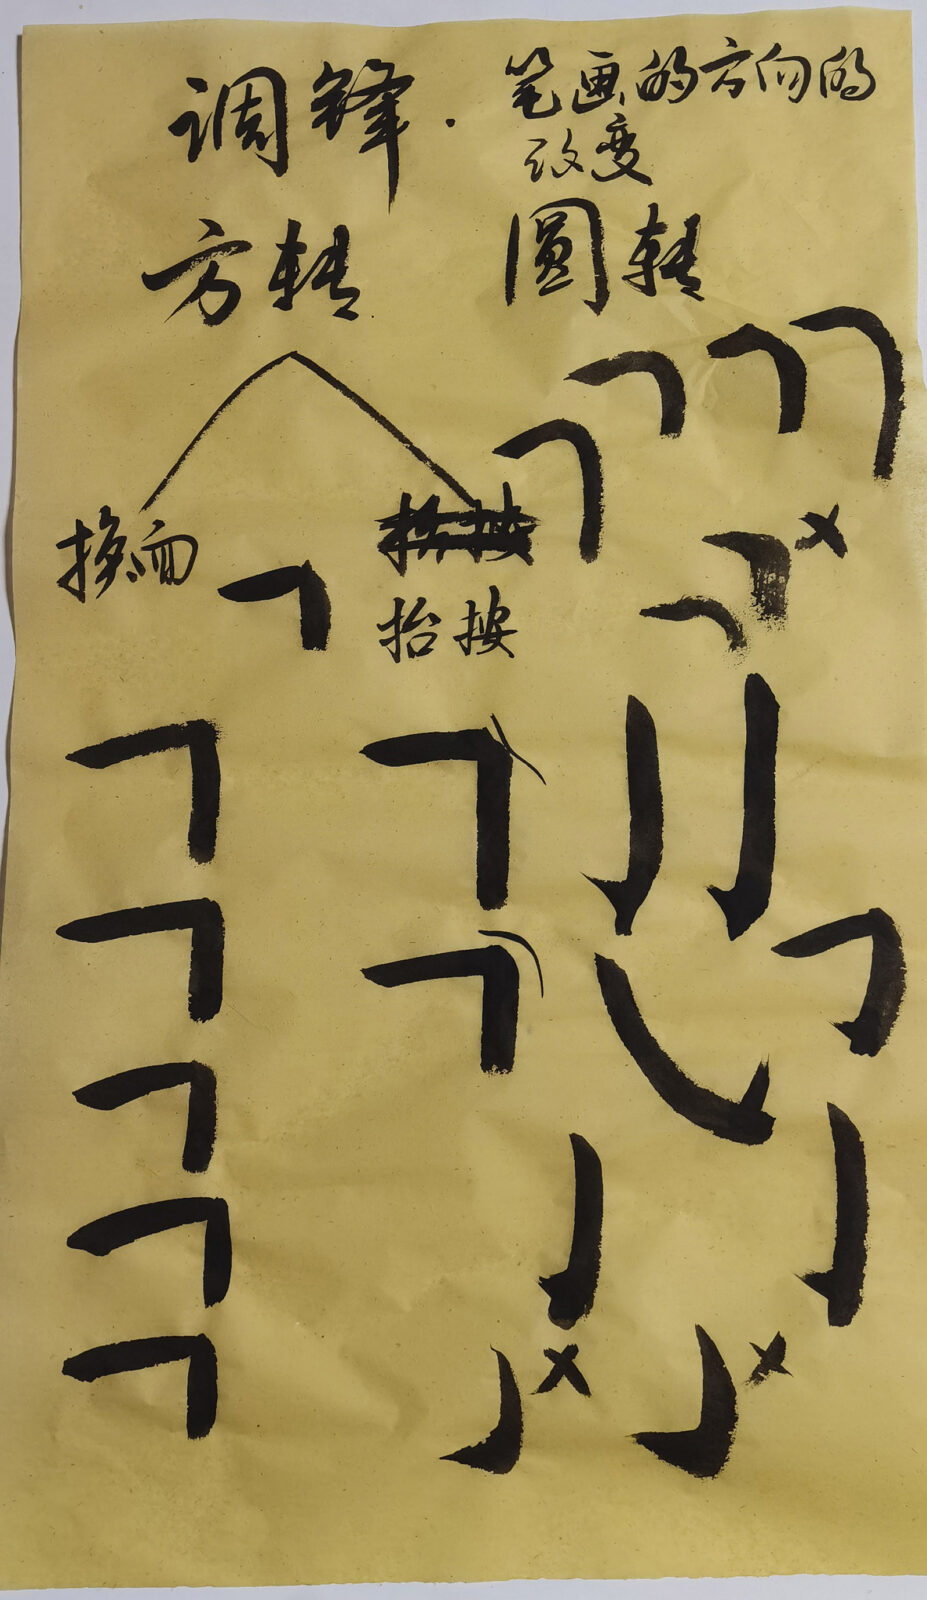 调锋.
笔画的方向的
改变
方转
圆转
换面
抬按